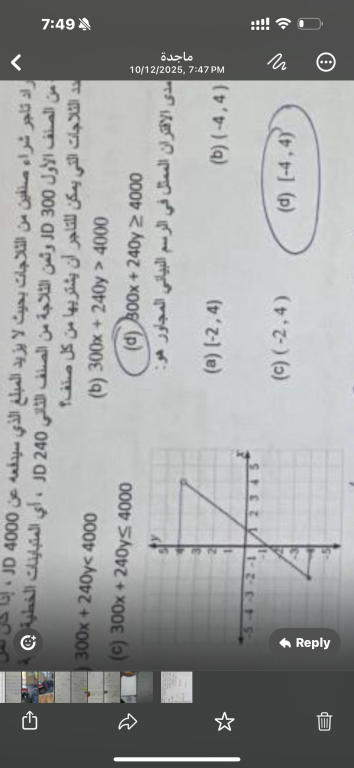 7:49
ماجدة
10/12/2025, 7:47 PM
راد تاجر شراء صنفين من الثلاجات بحيث لا يزيد المبلغ الذي سيدفعه عن JD 4000 ، إذا كان ثمن
من الصنف الأول JD 300 وثمن الثلاجة من الصنف الثاني JD 240 ، أي المتباينات الخطية
دد الثلاجات التي يمكن للتاجر أن يشتريها من كل صنف؟
) 300x + 240y< 4000
(b) 300x + 240y > 4000
(c) 300x + 240y≤ 4000
(d) 300x + 240y ≥ 4000
مدى الاقتران الممثل في الرسم البياني المجاور هو:
(a) [-2, 4)
(b) (-4, 4)
(c) (-2, 4)
(d) [-4, 4)
y
5
4
3
2
1
-5 -4 -3 -2 -1 1 2 3 4 5 x
-2
-3
-4
-5
Reply